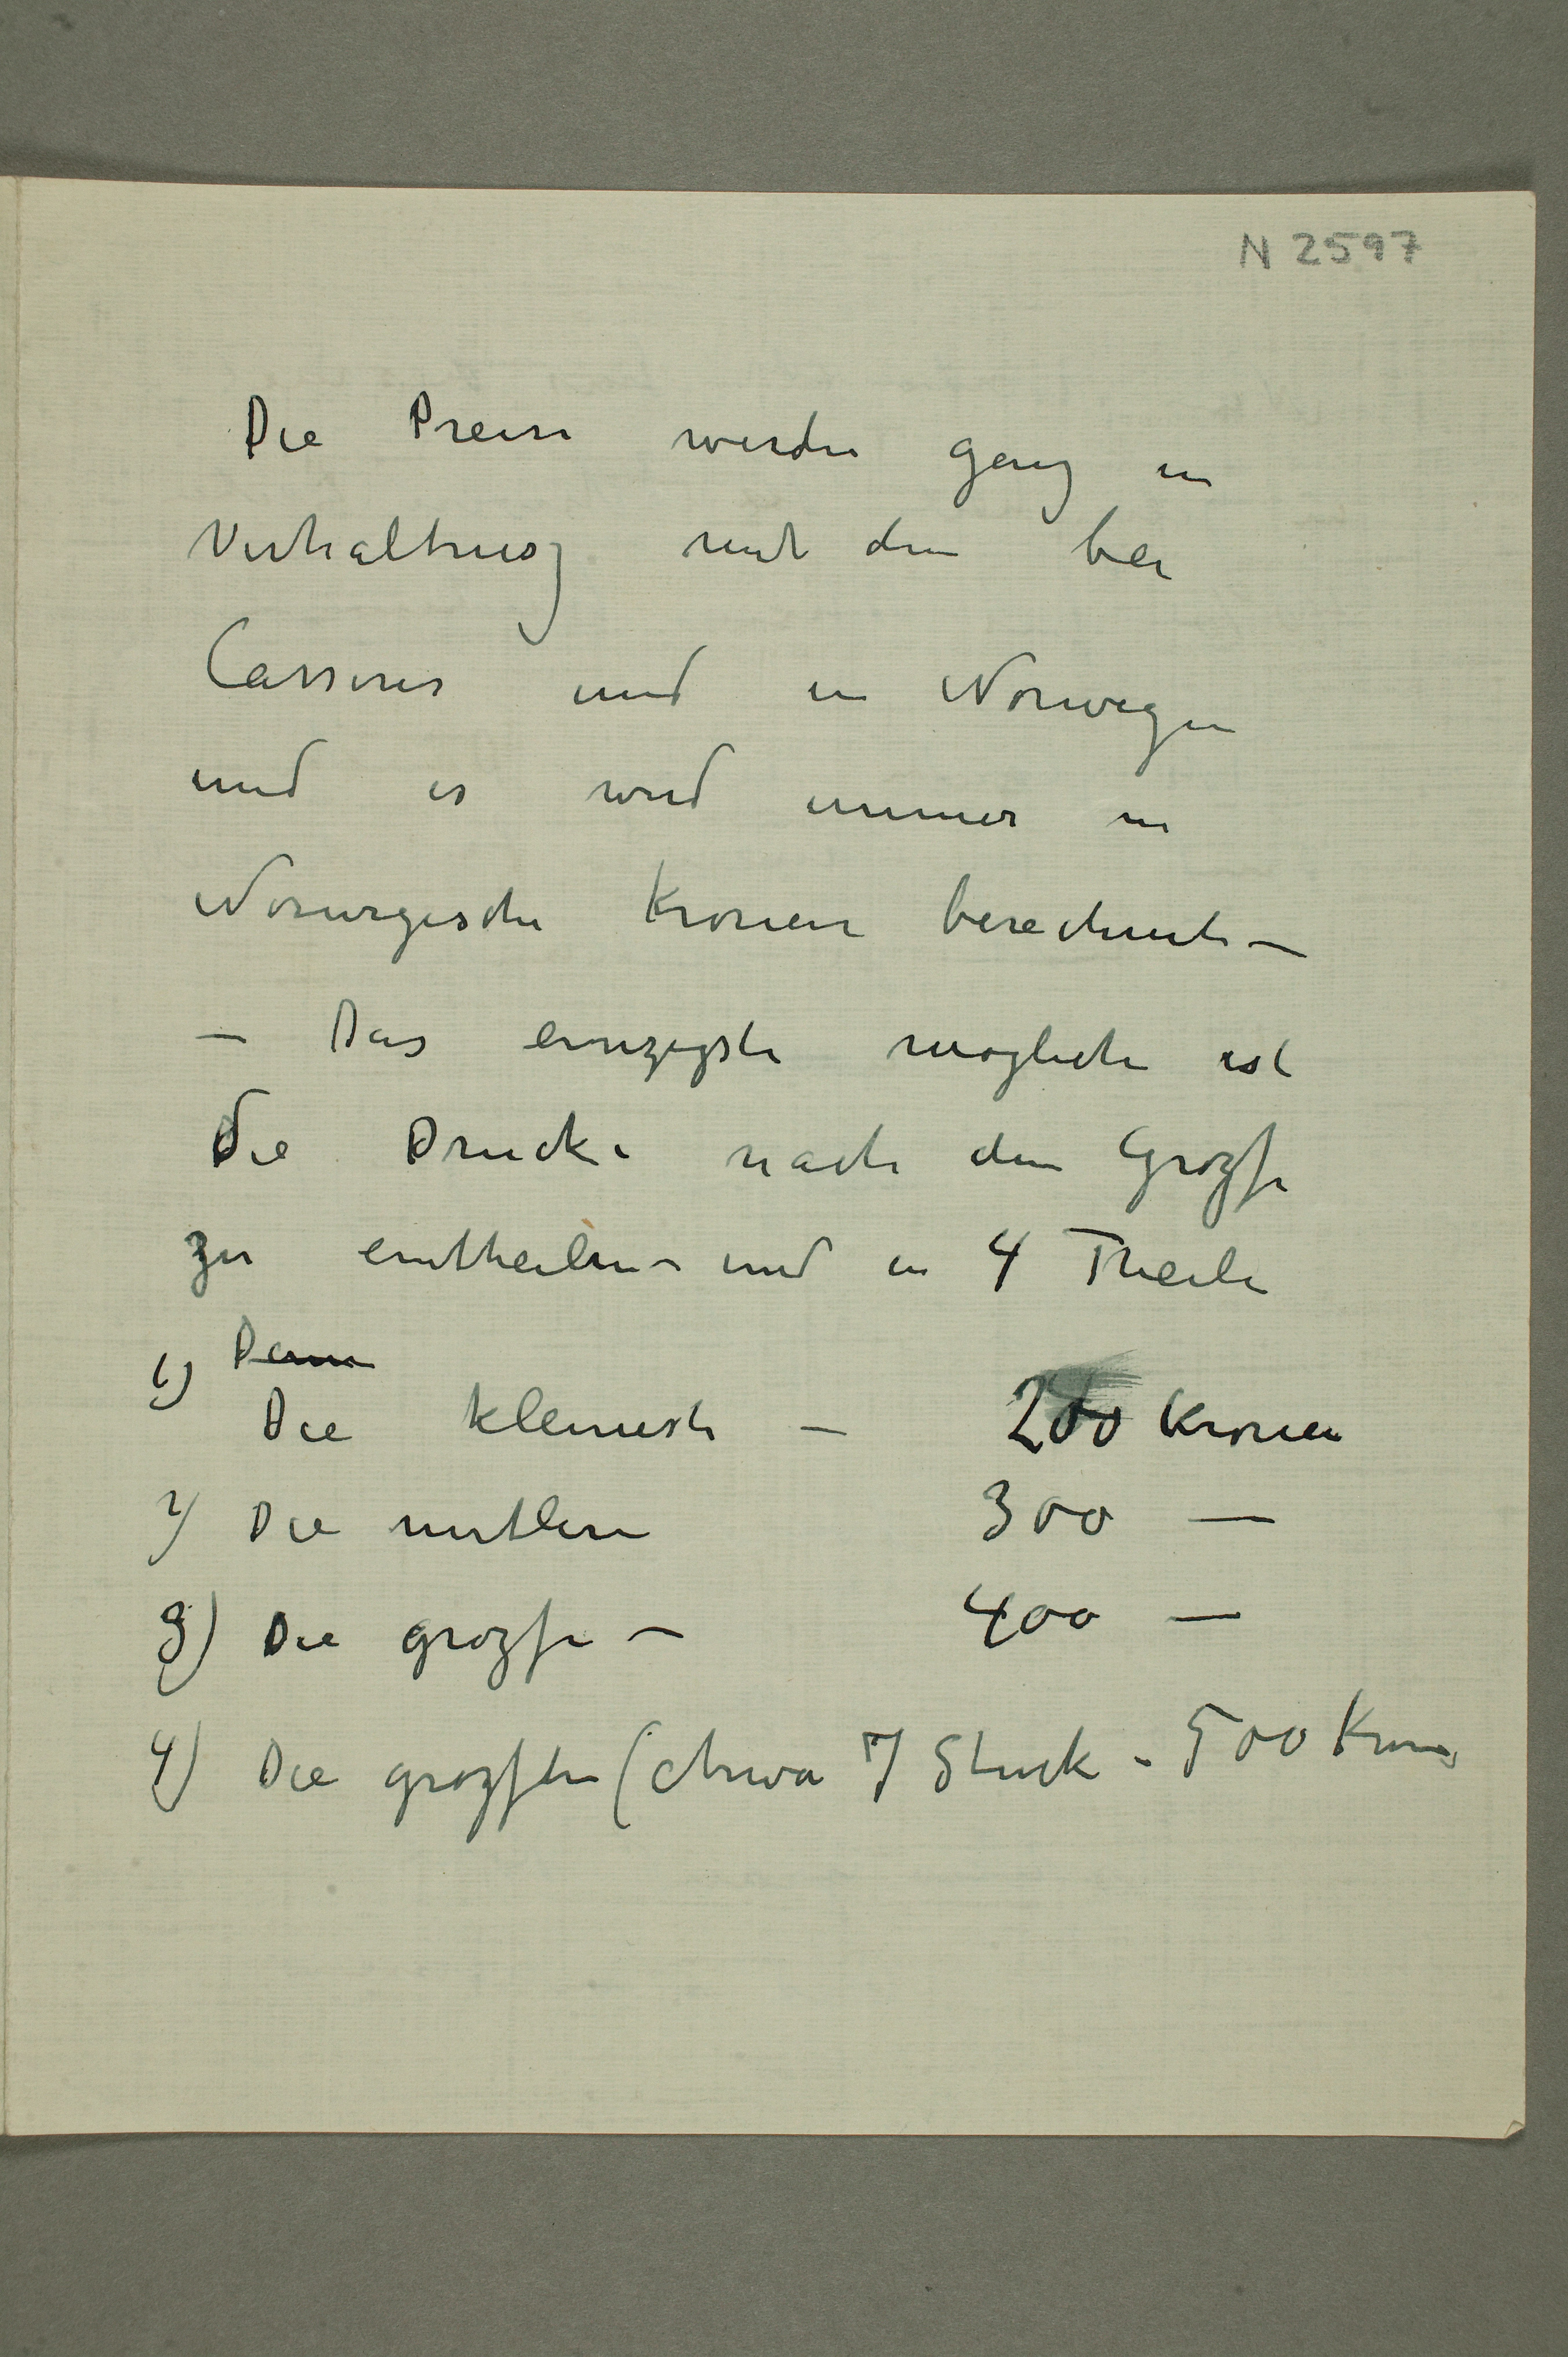 N 2597
Die Preise werden ganz in
Verhaltnisz mit dem bei
Cassirer und in Norwegen
und es wird immer in
Norwegische Kronen berechnet –
– Das einzigste mögliche ist
die Drucke nach dem Grozse
zu eintheilen – und in 4 Theile
1) Dann
Die kleinste – 200 Kronen
2) Die mitlere 300 —
3) Die grozse – 400 —
4) Die grozsten (etwa 7 Stuck – 500 Kronen